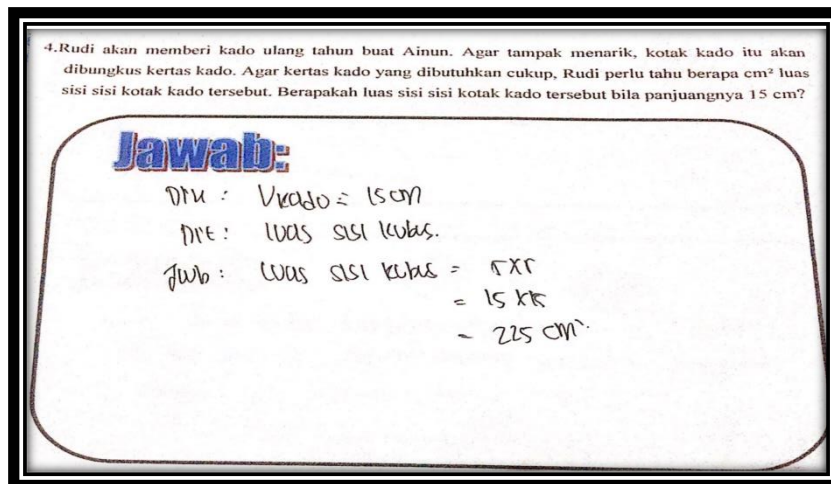 4.Rudi akan memberi kado ulang tahun buat Ainun. Agar tampak menarik, kotak kado itu akan
dibungkus kertas kado. Agar kertas kado yang dibutuhkan cukup, Rudi perlu tahu berapa cm² luas
sisi sisi kotak kado tersebut. Berapakah luas sisi sisi kotak kado tersebut bila panjuangnya 15 cm?
Jawab:
Dik : Vkado = 15 cm
Dit : luas sisi kubus.
Jwb : luas sisi kubus = r x r
= 15 x 15
= 225 cm².